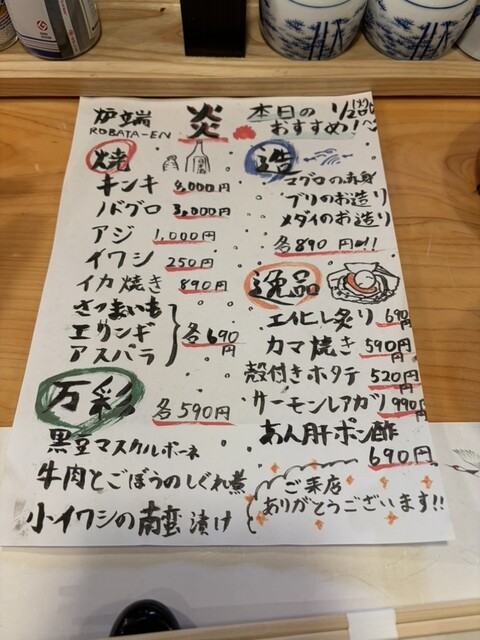 炉端 炎
ROBATA-EN
本日の
おすすめ!
焼
キンキ 8,000円
ノドグロ 3,000円
アジ 1,000円
イワシ 250円
イカ焼き 890円
さつまいも
エリンギ
アスパラ
各690円
万彩 各590円
黒豆マスカルポーネ
牛肉とごぼうのしぐれ煮
小イワシの南蛮漬け
造
マグロの赤身
ブリのお造り
メダイのお造り
各890円!!
逸品
エイヒレ炙り 690円
カマ焼き 590円
殻付きホタテ 520円
サーモンレアカツ 990円
あん肝ポン酢
690円
ご来店
ありがとうございます!!